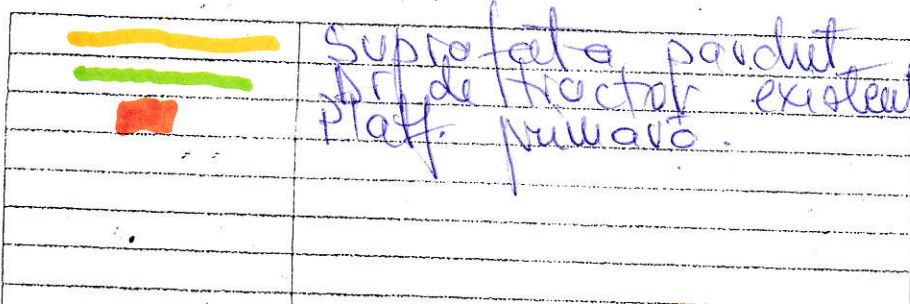 Suprafata parchet
Dr. de tractor existent
Platf. primara.